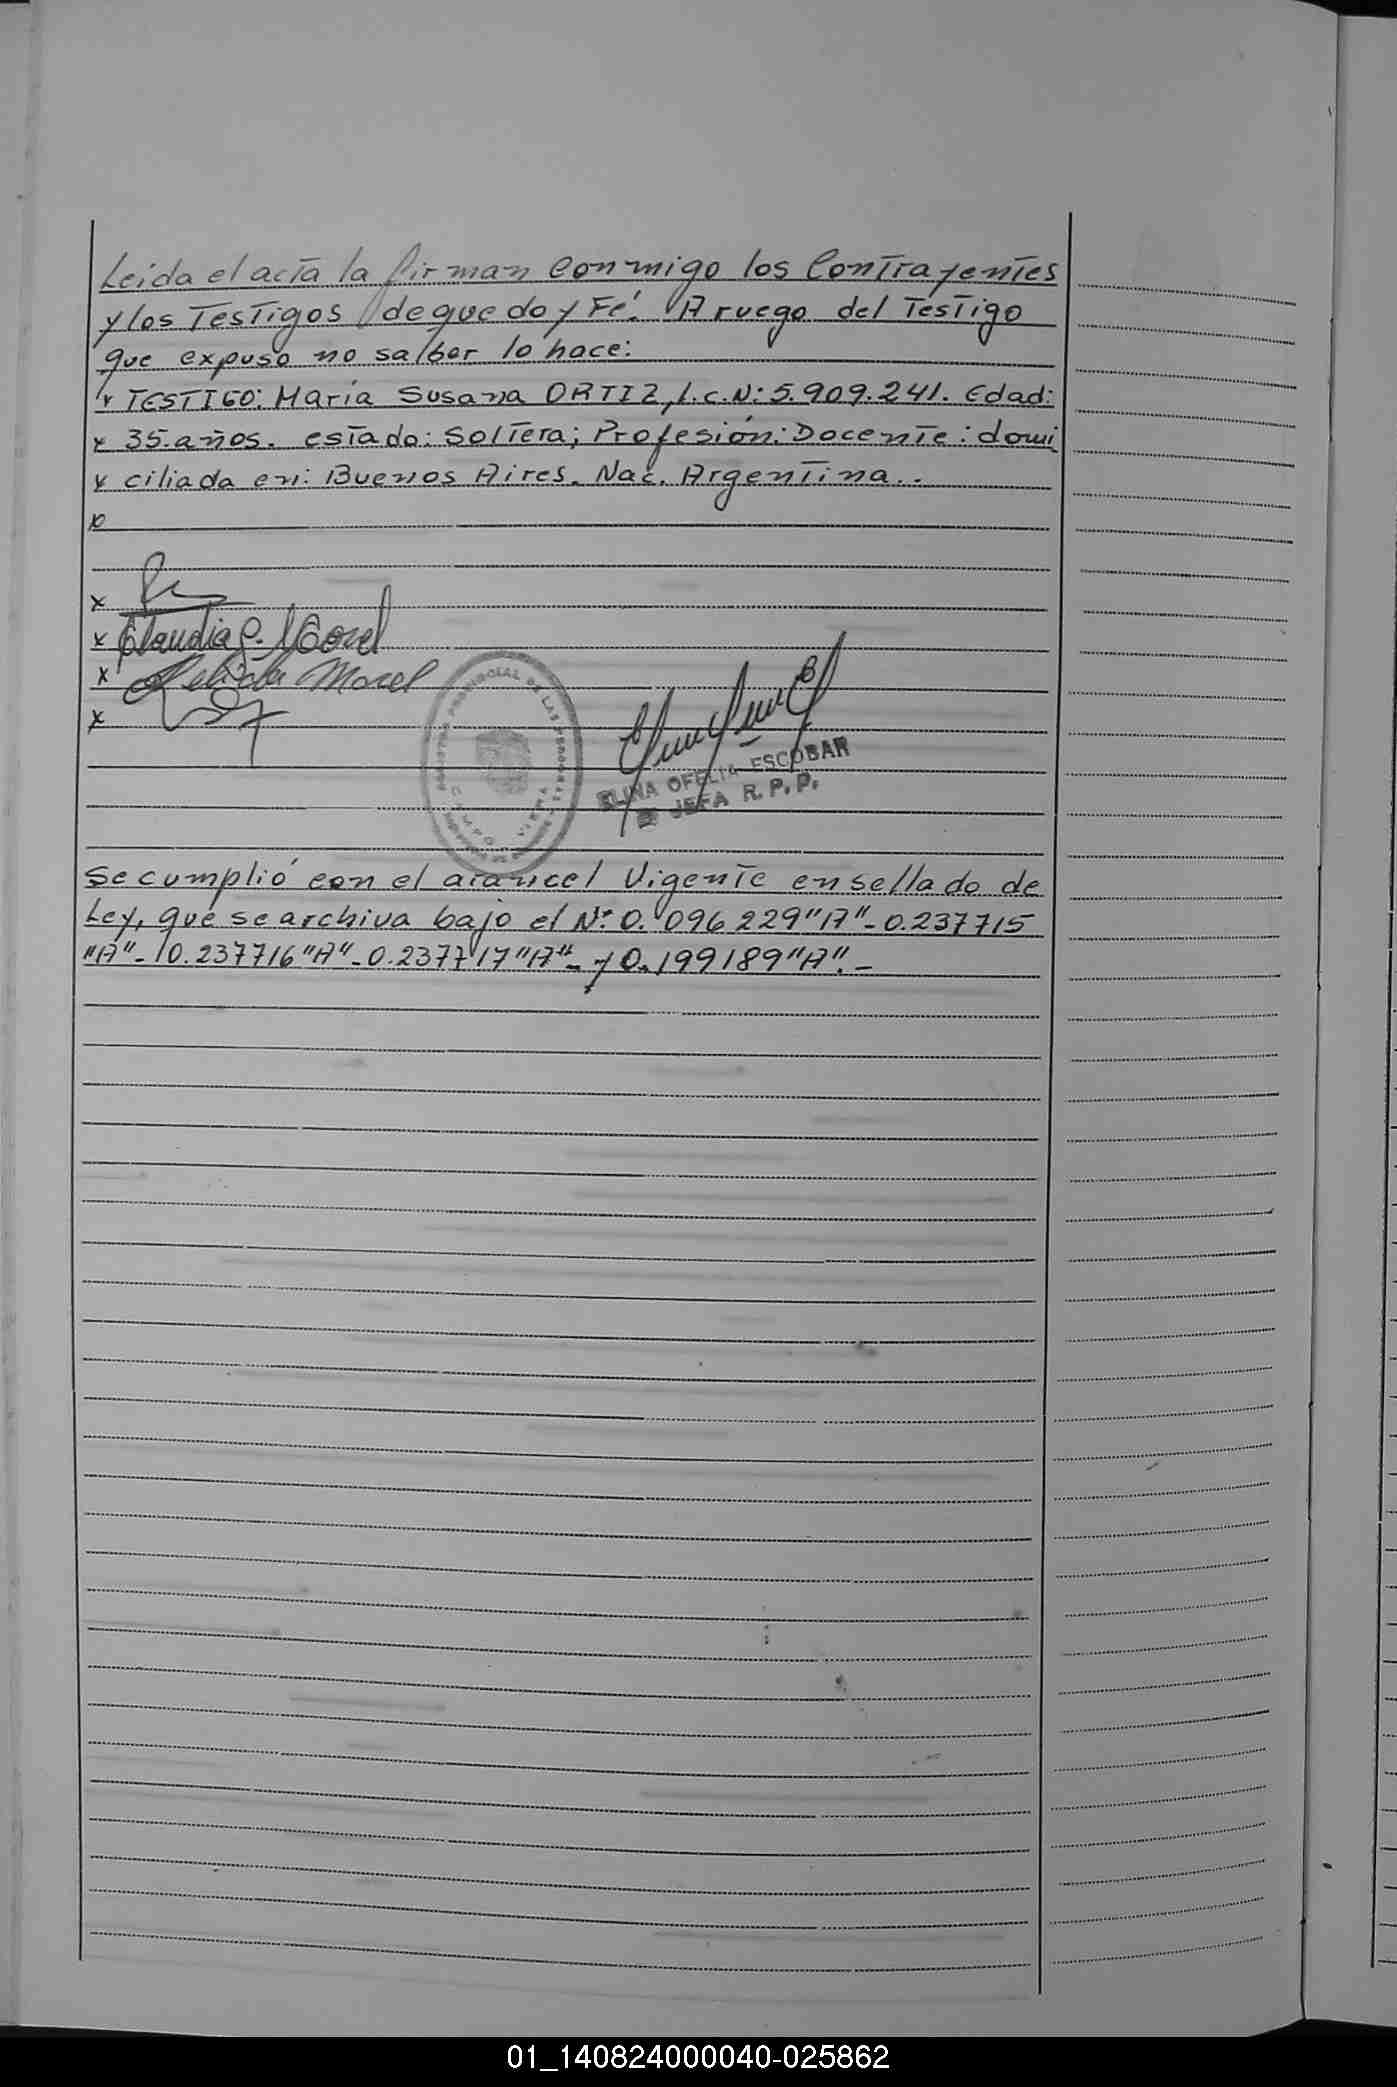 Leida el acta la firman conmigo los Contrayentes
y los Testigos de que doy Fé. A ruego del Testigo
que expuso no saber lo hace:
x TESTIGO: María Susana ORTIZ, L.C.N: 5.909.241. Edad:
x 35. años. estado: Soltera; Profesión: Docente: domi
x ciliada en: Buenos Aires. Nac. Argentina..
x
x
x Claudia Morel
x Felicita Morel
x
REGISTRO PROVINCIAL DE LAS PERSONAS
CAMPO VIERA
ELINA OFELIA ESCOBAR
JEFA R.P.P.
Se cumplió con el arancel Vigente en sellado de
Ley, que se archiva bajo el N° 0.096229 "A" - 0.237715
"A" - 0.237716 "A" - 0.237717 "A" - y 0.199189 "A". -
01_140824000040-025862